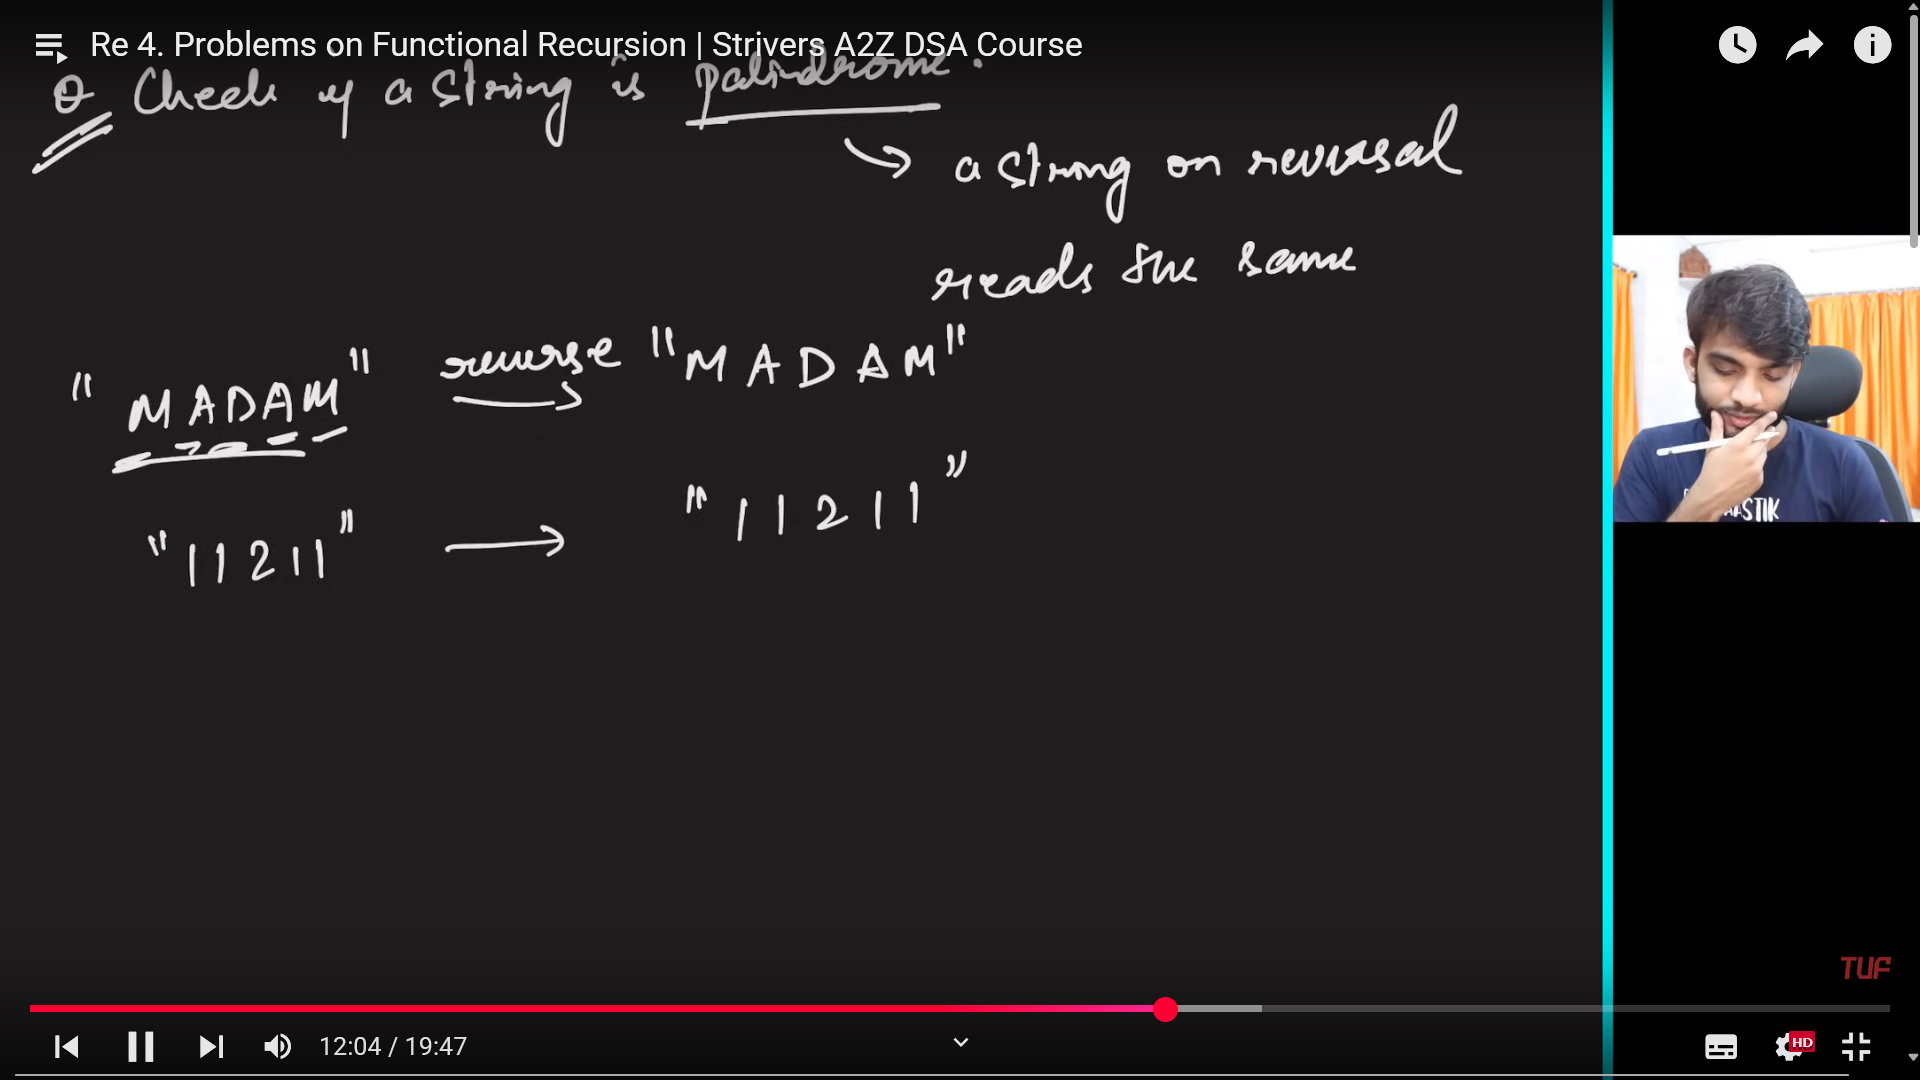 Re 4. Problems on Functional Recursion | Strivers A2Z DSA Course
Q Check if a string is palindrome.
a string on reversal
reads the same
"MADAM" reverse "MADAM"
"11211" "11211"
ASTIK
TUF
12:04 / 19:47
HD